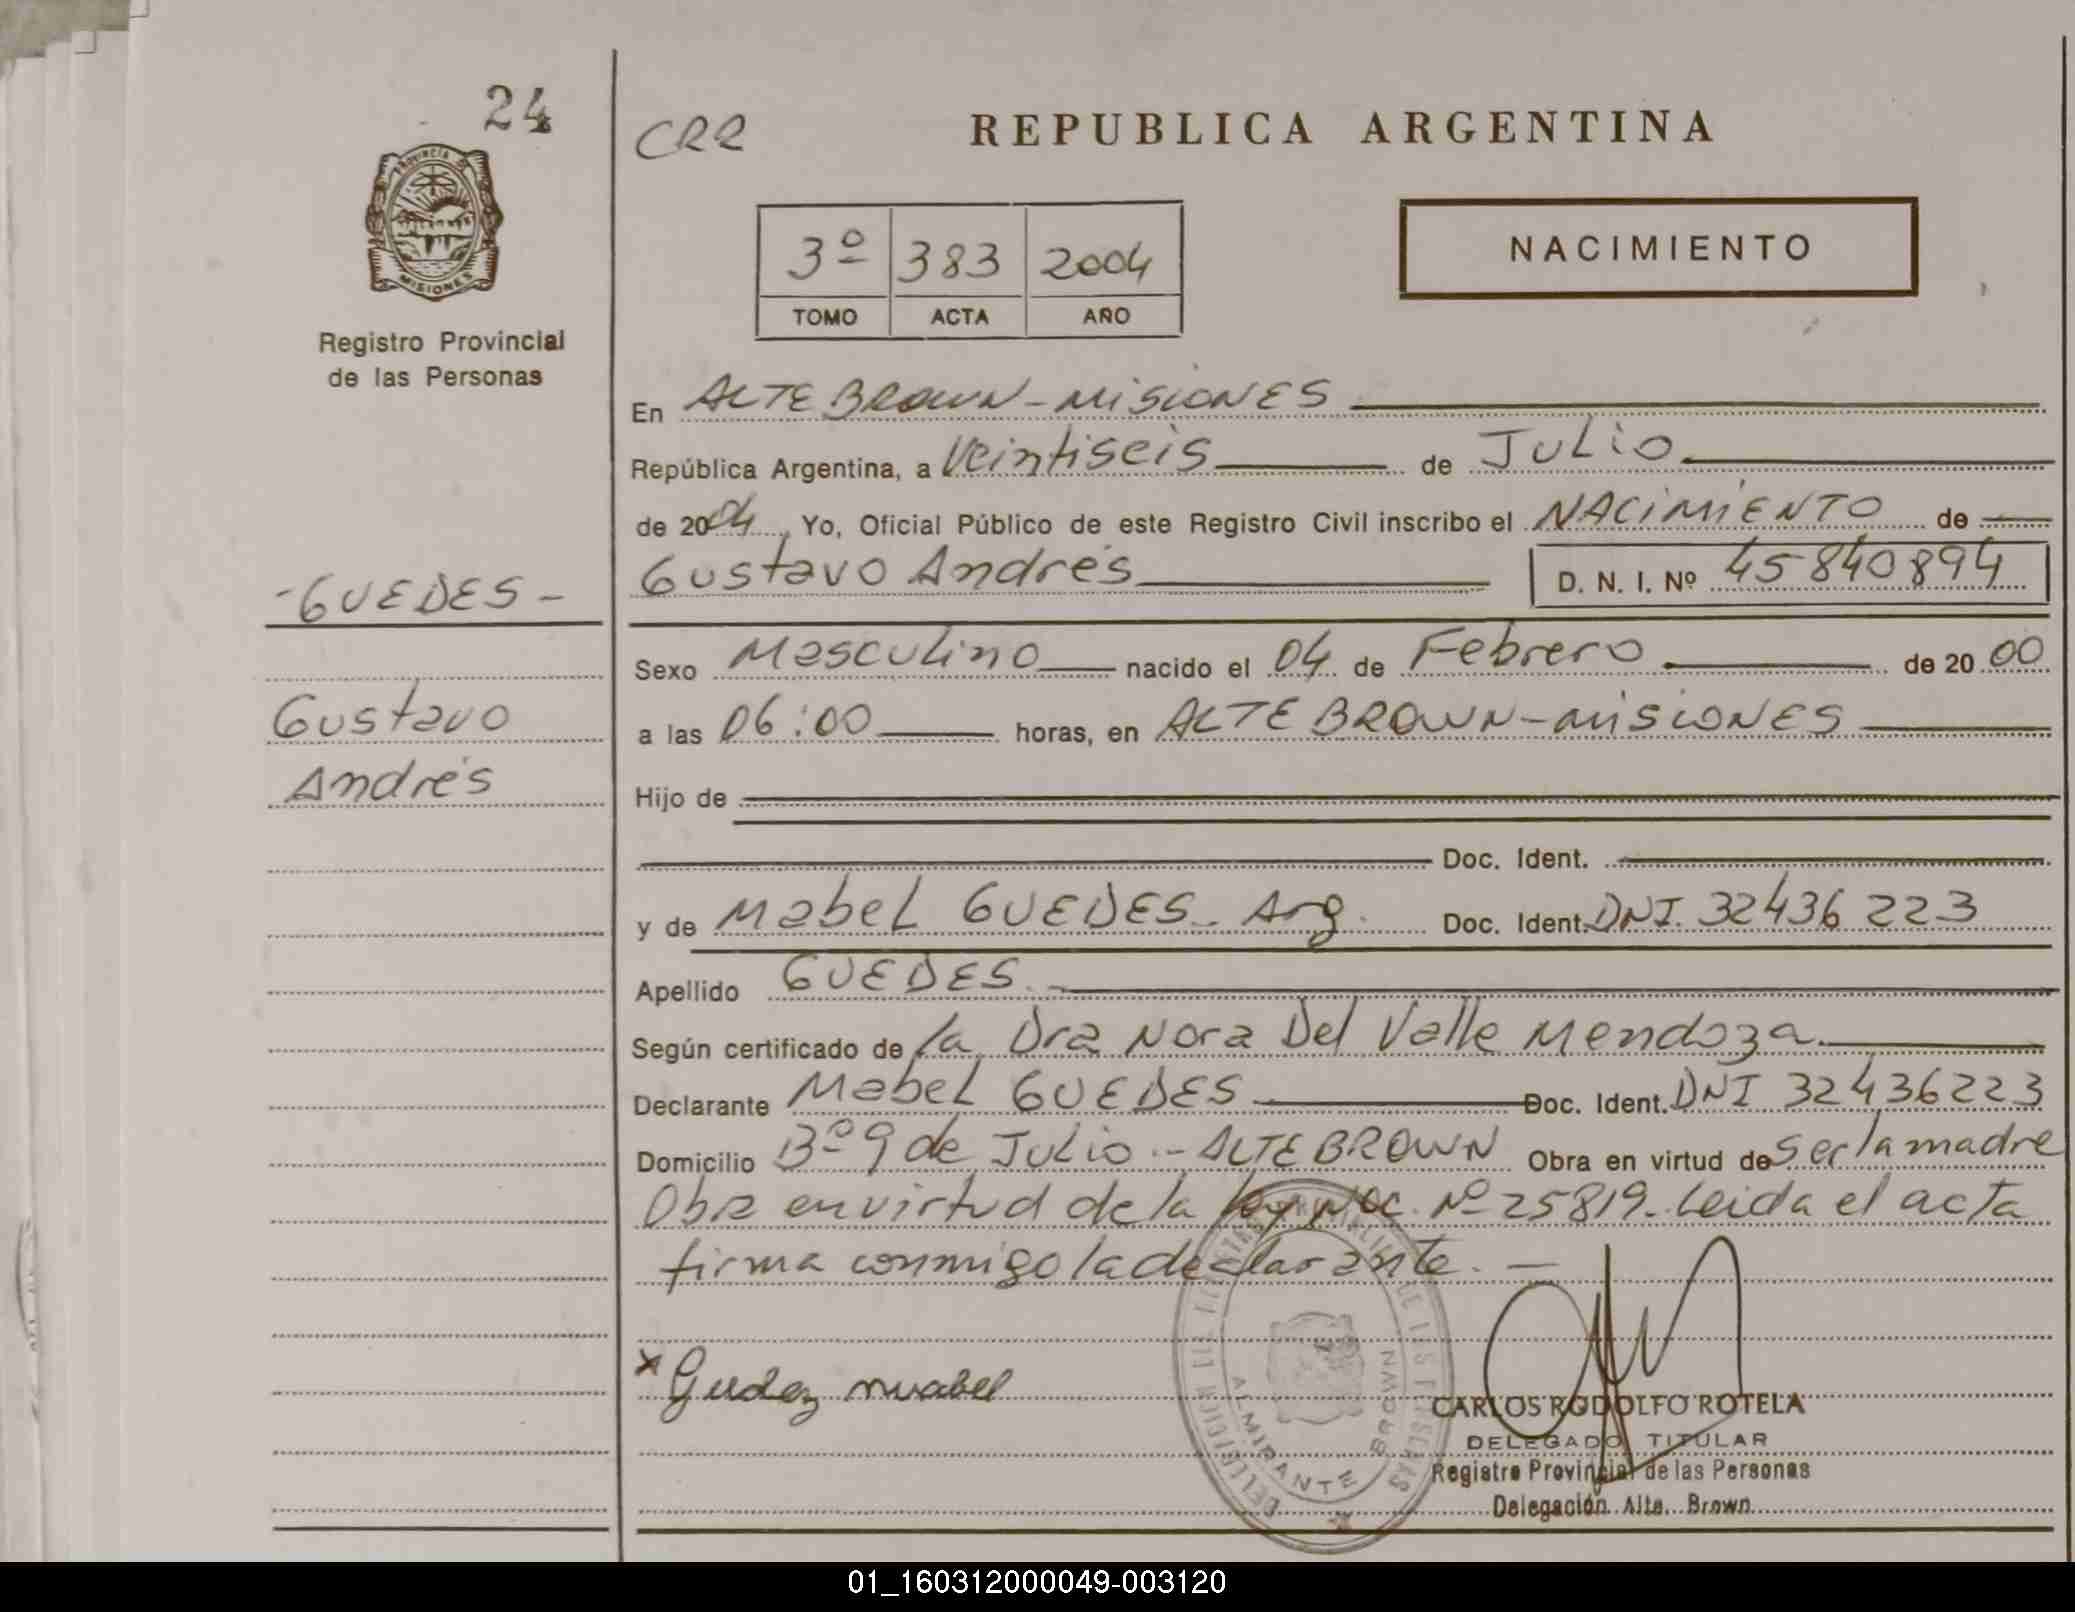 24
CRR
REPUBLICA ARGENTINA
PROVINCIA DE
MISIONES
Registro Provincial
de las Personas
3º 383 2004
TOMO ACTA AÑO
NACIMIENTO
En ALTE BROWN - MISIONES
República Argentina, a Veintiseis de JULIO
de 2004, Yo, Oficial Público de este Registro Civil inscribo el NACIMIENTO de
Gustavo Andrés D. N. I. Nº 45840894
- GUEDES -
Gustavo
Andrés
Sexo Masculino nacido el 04 de Febrero de 20 00
a las 06:00 horas, en ALTE BROWN - MISIONES
Hijo de
Doc. Ident.
y de Mabel GUEDES - Arg. Doc. Ident. DNI. 32436223
Apellido GUEDES
Según certificado de la Dra Nora Del Valle Mendoza
Declarante Mabel GUEDES Doc. Ident. DNI 32436223
Domicilio Bº 9 de JULIO - ALTE BROWN Obra en virtud de ser la madre
Obra en virtud de la ley Nº 25819. Leida el acta
firma conmigo la declarante. -
x Guedez mabel
ALMIRANTE BROWN
CARLOS RODOLFO ROTELA
DELEGADO TITULAR
Registro Provincial de las Personas
Delegación Alte. Brown
01_160312000049-003120